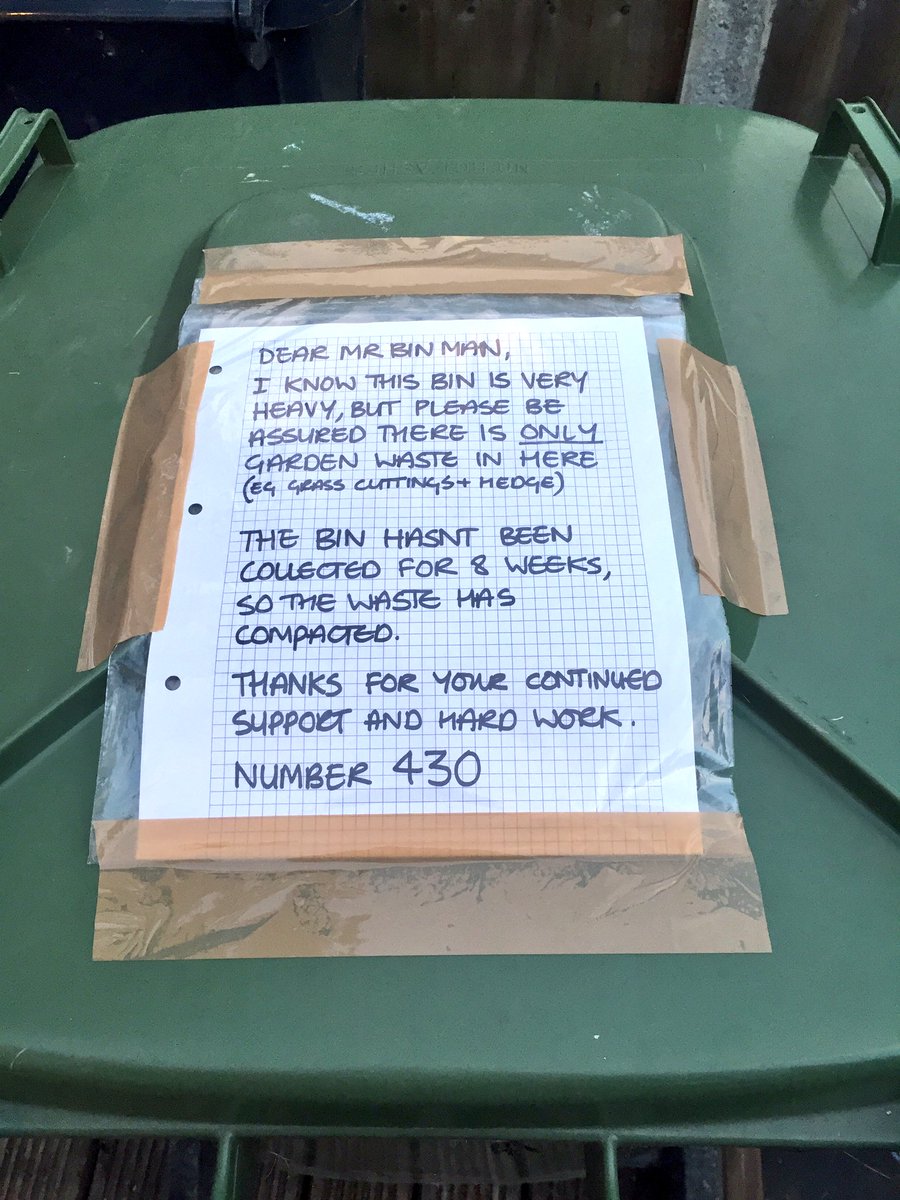 DEAR MR BIN MAN,
I KNOW THIS BIN IS VERY
HEAVY, BUT PLEASE BE
ASSURED THERE IS ONLY
GARDEN WASTE IN HERE
(EG GRASS CUTTINGS + HEDGE)
THE BIN HASNT BEEN
COLLECTED FOR 8 WEEKS,
SO THE WASTE HAS
COMPACTED.
THANKS FOR YOUR CONTINUED
SUPPORT AND HARD WORK.
NUMBER 430